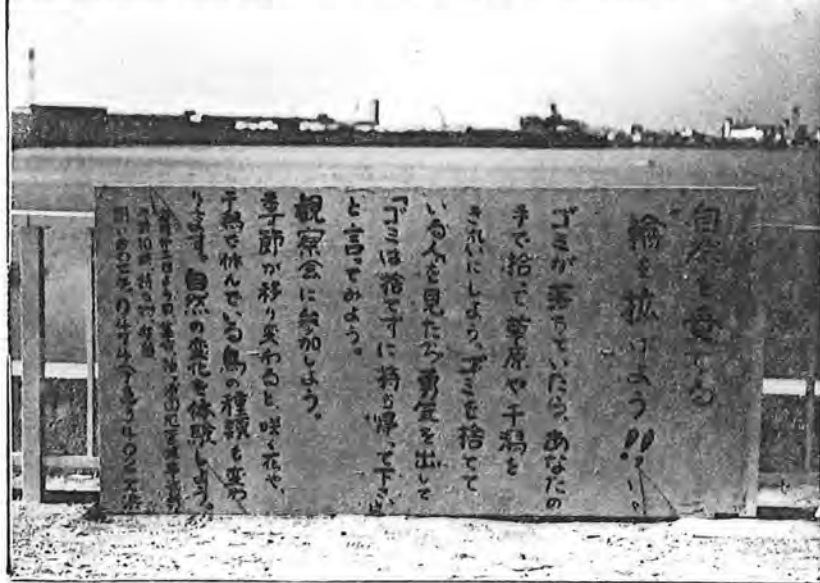 自然を愛する
輪を拡げよう!!
ゴミが落ちていたら、あなたの
手で拾って草原や干潟を
きれいにしよう。ゴミを捨てて
いる人を見たら勇気を出して
「ゴミは捨てずに持ち帰って下さい」
と言ってみよう。
観察会に参加しよう。
季節が移り変わると、咲く花や、
干潟で休んでいる鳥の種類も変わ
ります。自然の変化を体験しよう。